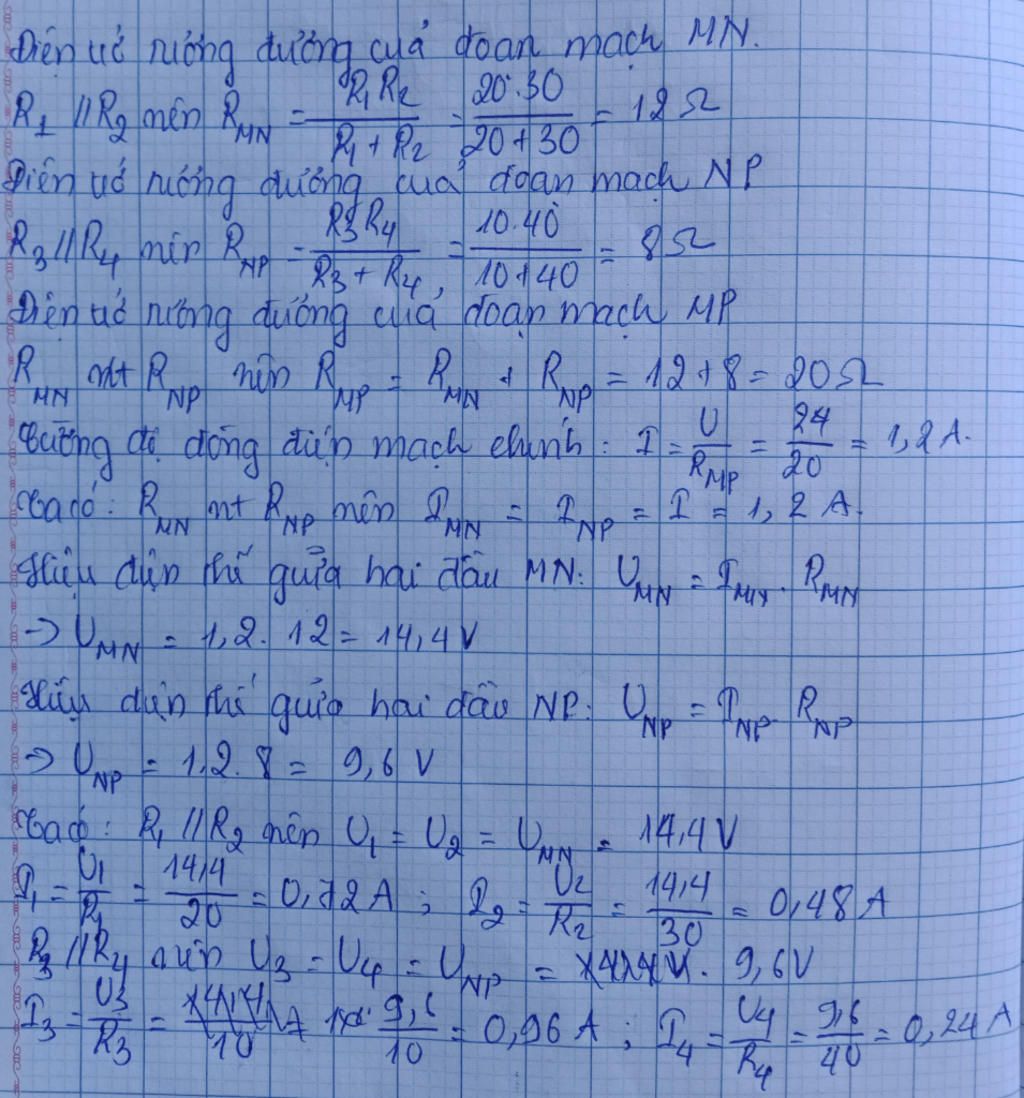 Điện trở tương đương của đoạn mạch MN.
R₁ // R₂ nên R_MN = R₁R₂ / (R₁ + R₂) = 20.30 / (20 + 30) = 12 Ω
Điện trở tương đương của đoạn mạch NP
R₃ // R₄ nên R_NP = R₃R₄ / (R₃ + R₄) = 10.40 / (10 + 40) = 8 Ω
Điện trở tương đương của đoạn mạch MP
R_MN nt R_NP nên R_MP = R_MN + R_NP = 12 + 8 = 20 Ω
Cường độ dòng điện mạch chính : I = U / R_MP = 24 / 20 = 1,2 A.
Ta có : R_MN nt R_NP nên I_MN = I_NP = I = 1,2 A.
Hiệu điện thế giữa hai đầu MN : U_MN = I_MN . R_MN
→ U_MN = 1,2 . 12 = 14,4 V
Hiệu điện thế giữa hai đầu NP : U_NP = I_NP . R_NP
→ U_NP = 1,2 . 8 = 9,6 V
Ta có : R₁ // R₂ nên U₁ = U₂ = U_MN = 14,4 V
I₁ = U₁ / R₁ = 14,4 / 20 = 0,72 A ; I₂ = U₂ / R₂ = 14,4 / 30 = 0,48 A
R₃ // R₄ nên U₃ = U₄ = U_NP = 9,6 V
I₃ = U₃ / R₃ = 9,6 / 10 = 0,96 A ; I₄ = U₄ / R₄ = 9,6 / 40 = 0,24 A